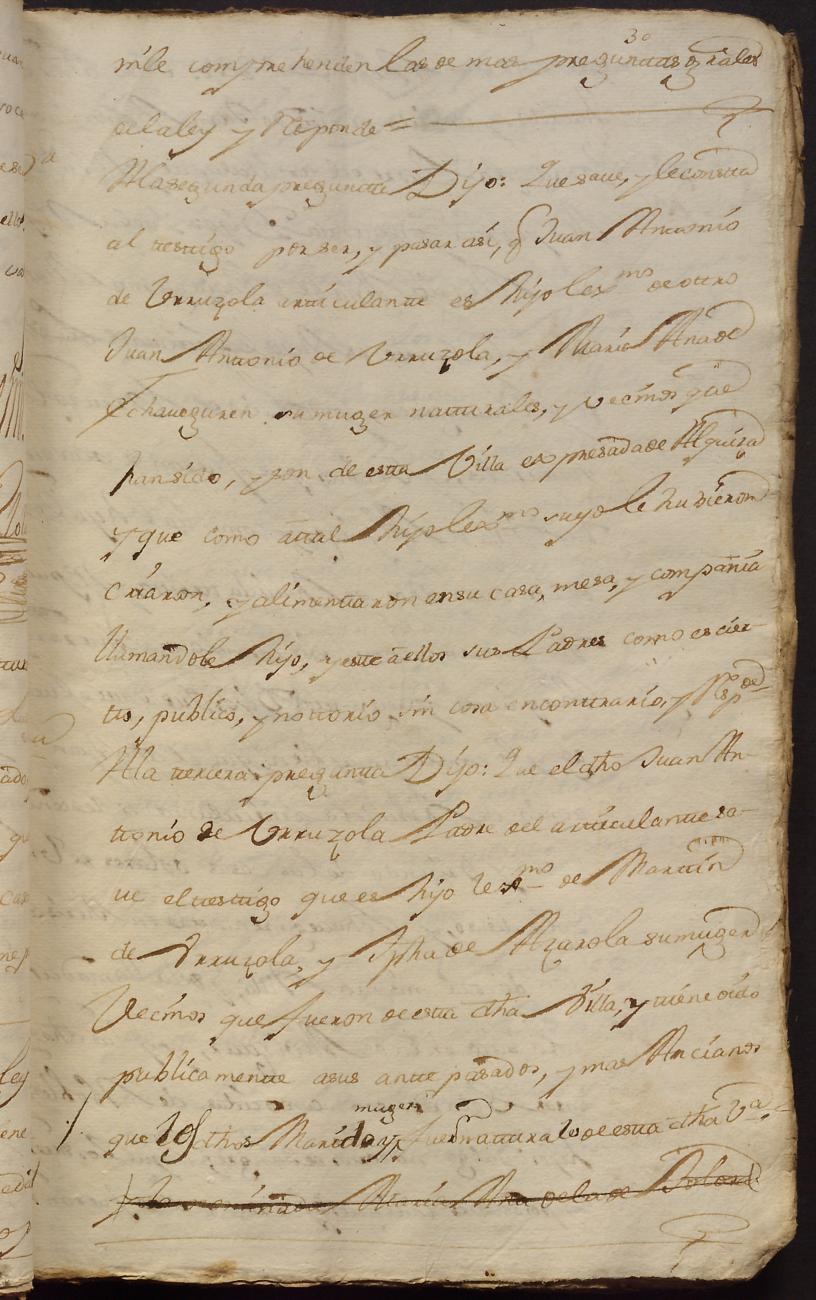 30
nile comprehenden las demas preguntas grāles
dela ley y Responde =
Ala segunda pregunta Dijo: Que save, y le consta
al testigo por ser, y pasar asi, q Juan Antonio
de Urruzola articulante es hijo lexmo de otro
Juan Antonio de Urruzola, y Maria Ana de
Echaveguren su muger naturales, y vecinos que
han sido, y son de esta Villa expresada de Alquiza
y que como atal hijo lexmo suyo le hubieron
criaron, y alimentaron en su casa, mesa, y compañia
llamandole hijo, y este àellos sus Padres como es cier-
to, publico, y notorio sin cosa en contrario, y Respde
Ala tercera pregunta Dijo: Que el dho Juan An-
tonio de Urruzola Padre del articulante sa-
ve el testigo que es hijo lexmo de Martin
de Urruzola, y Jpha de Alzurola su muger
Vecinos que fueron de esta dha Villa, y tiene oido
publicamente asus antepasados, y mas Ancianos
muger
que los dhos Marido y fueron naturales de esta dha Va
Maria Ana de la de